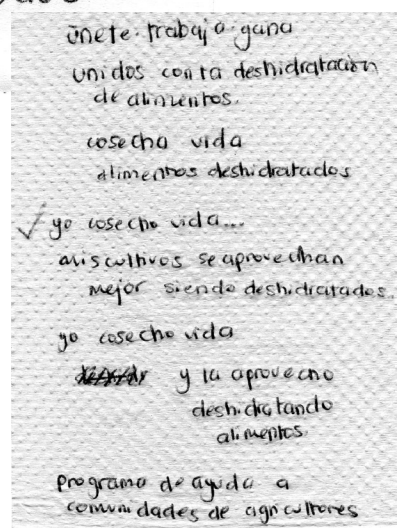 únete · trabaja · gana
unidos con la deshidratación
de alimentos.
cosecha vida
alimentos deshidratados
yo cosecho vida...
mis cultivos se aprovechan
mejor siendo deshidratados.
yo cosecho vida
y la aprovecho
deshidratando
alimentos
programa de ayuda a
comunidades de agricultores